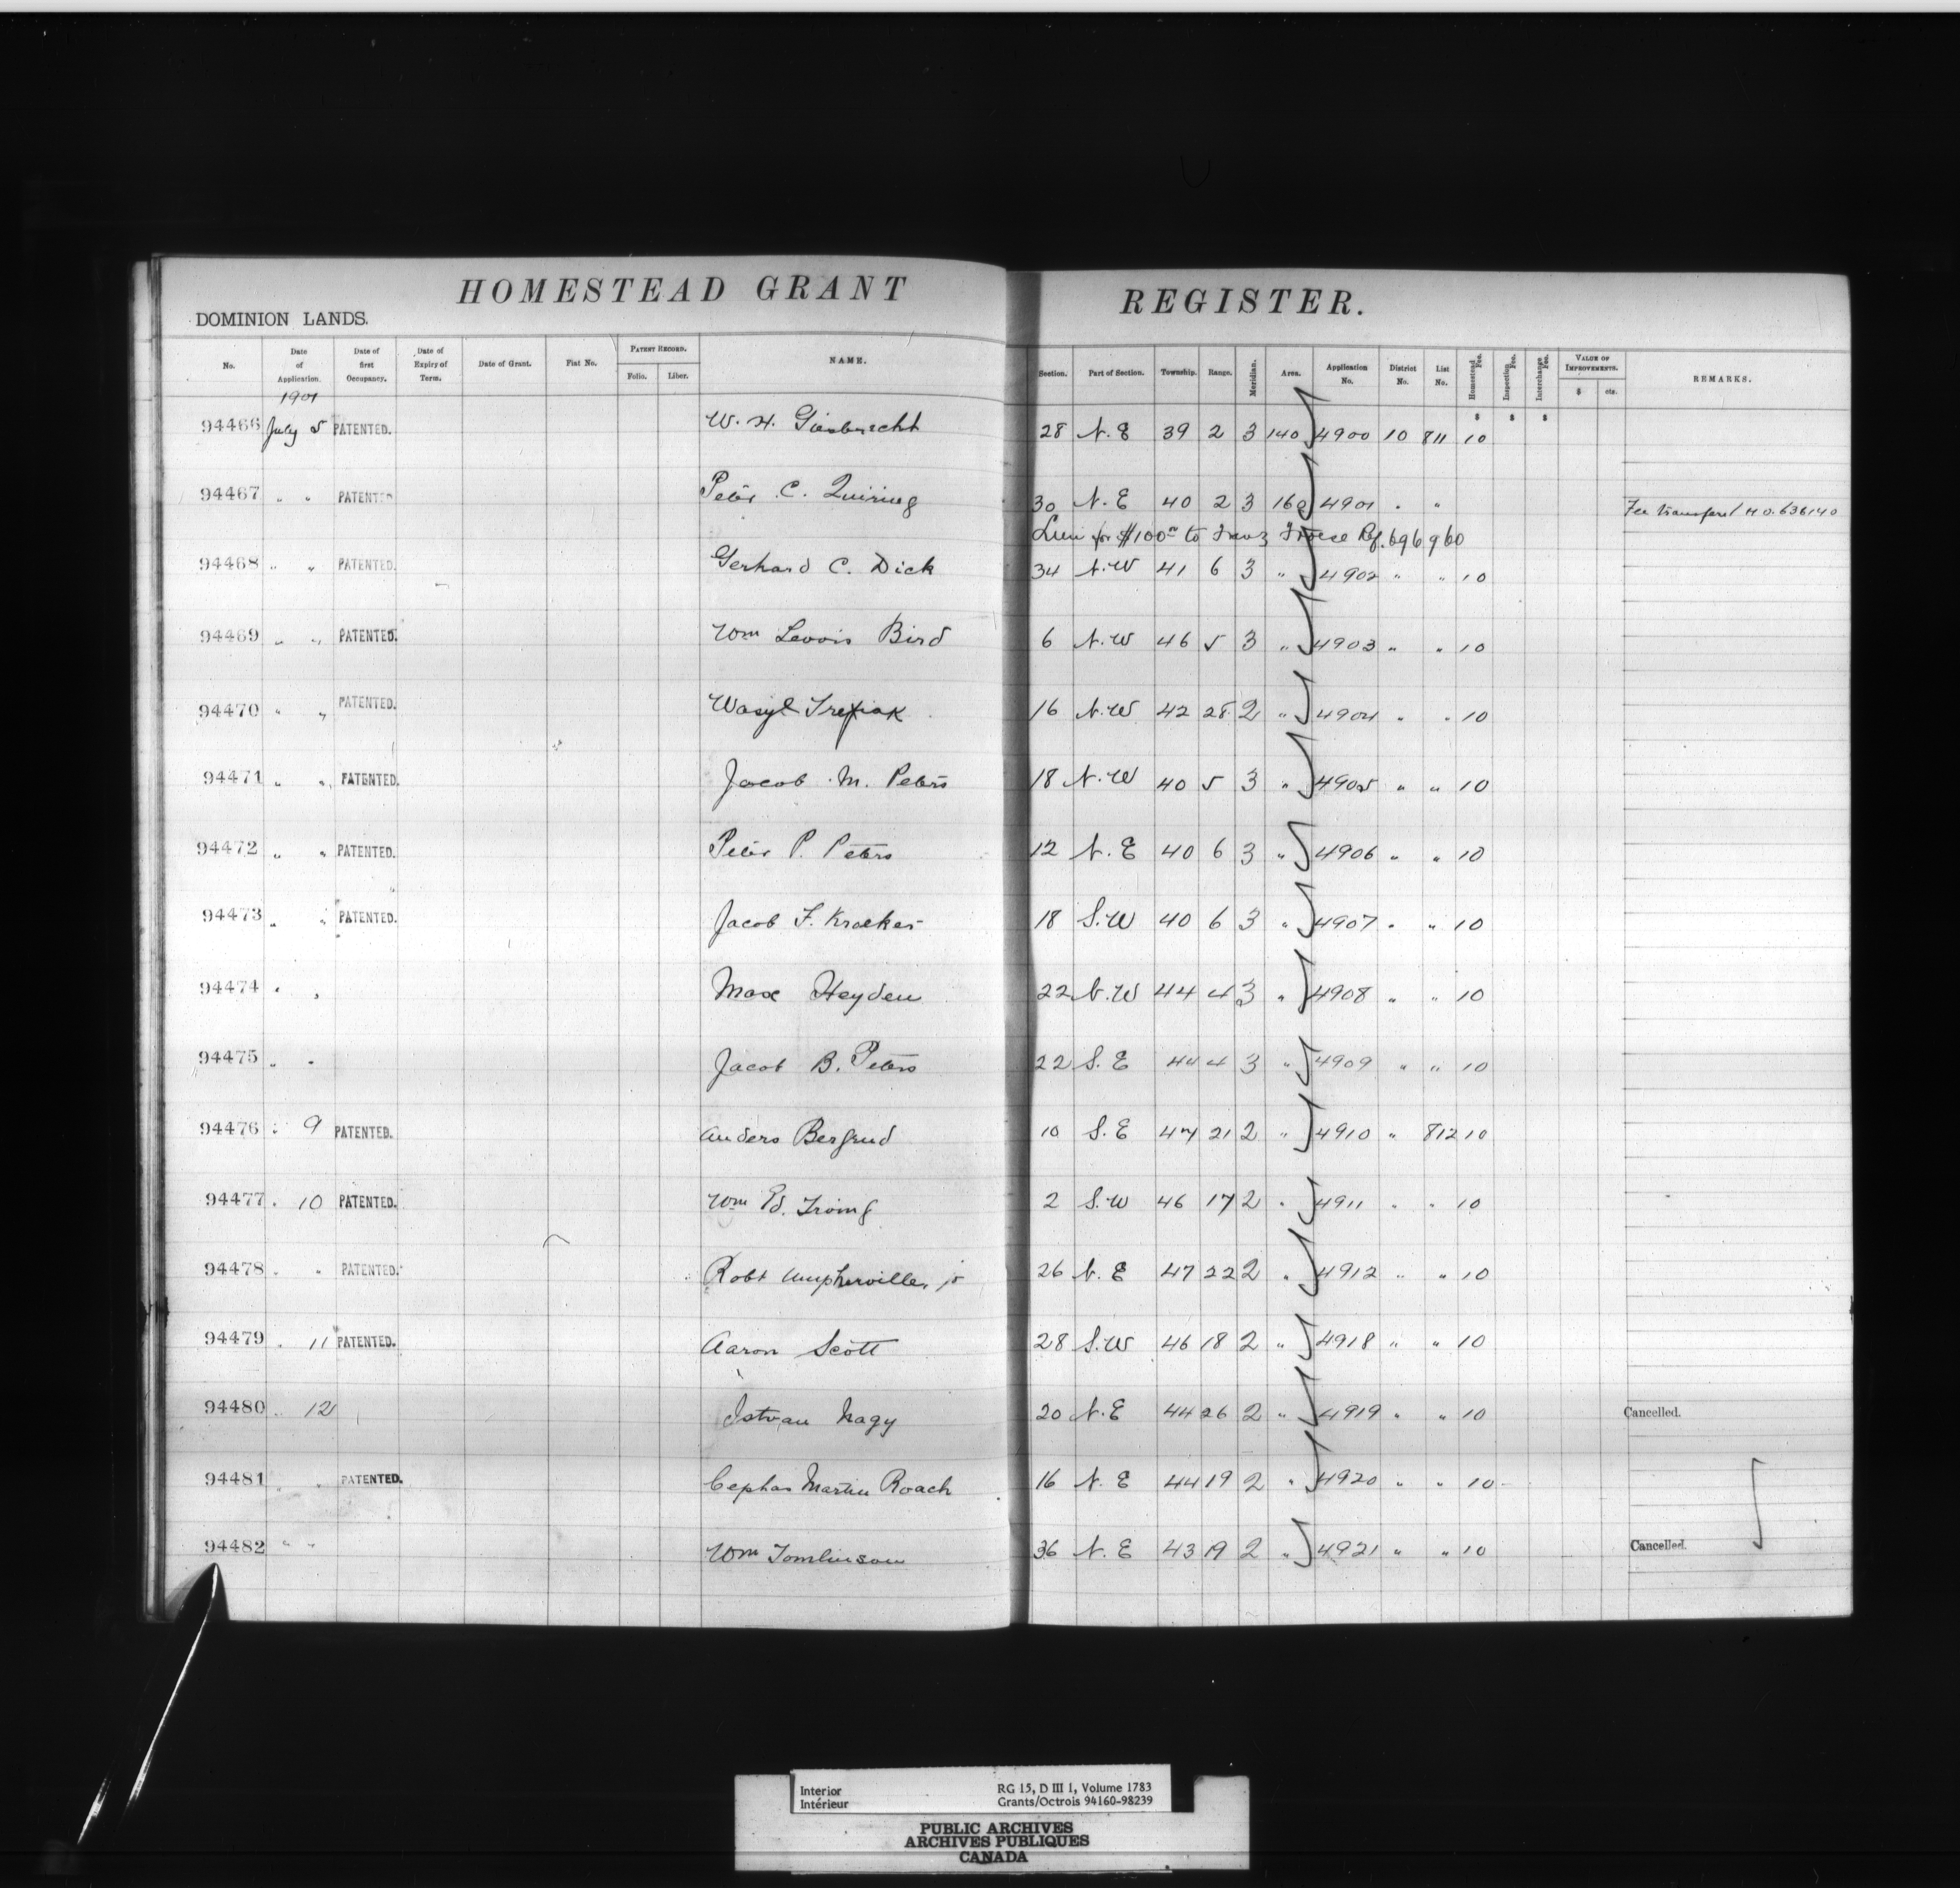 HOMESTEAD GRANT REGISTER.
DOMINION LANDS.
No. Date of Application. Date of first Occupancy. Date of Expiry of Term. Date of Grant. Fiat No. PATENT RECORD. Folio. Liber. NAME. Section. Part of Section. Township. Range. Meridian. Area. Application No. District No. List No. Homestead Fee. Inspection Fee. Interchange Fee. VALUE OF IMPROVEMENTS. $ cts. REMARKS.
1901
$ $ $
94466 July 5 PATENTED. W. H. Giesbrecht 28 N.E 39 2 3 140 4900 10 811 10
94467 " " PATENTED Peter C. Quiring 30 N.E 40 2 3 160 4901 " " Fee transferd H.O. 636140
Lien for $100 to Franz Froese Ref. 696960
94468 " " PATENTED. Gerhard C. Dick 34 N.W 41 6 3 " 4902 " " 10
94469 " " PATENTED. Wm Lewis Bird 6 N.W 46 5 3 " 4903 " " 10
94470 " " PATENTED. Wasyl 16 N.W 42 28 2 " 4904 " " 10
94471 " " PATENTED. Jacob M. Peters 18 N.W 40 5 3 " 4905 " " 10
94472 " " PATENTED. Peter P. Peters 12 N.E 40 6 3 " 4906 " " 10
94473 " " PATENTED. Jacob F. Kroeker 18 S.W 40 6 3 " 4907 " " 10
94474 " " Max Heyden 22 N.W 44 4 3 " 4908 " " 10
94475 " " Jacob B. Peters 22 S.E 44 4 3 " 4909 " " 10
94476 " 9 PATENTED. Anders 10 S.E 47 21 2 " 4910 " 812 10
94477 " 10 PATENTED. Wm Ed. Irving 2 S.W 46 17 2 " 4911 " " 10
94478 " " PATENTED. Robt Umpherville, jr 26 N.E 47 22 2 " 4912 " " 10
94479 " 11 PATENTED. Aaron Scott 28 S.W 46 18 2 " 4918 " " 10
94480 " 12 Istvan Nagy 20 N.E 44 26 2 " 4919 " " 10 Cancelled.
94481 " " PATENTED. Cephas Martin Roach 16 N.E 44 19 2 " 4920 " " 10
94482 " " Wm Tomlinson 36 N.E 43 19 2 " 4921 " " 10 Cancelled.
Interior RG 15, D III 1, Volume 1783
Intérieur Grants/Octrois 94160-98239
PUBLIC ARCHIVES
ARCHIVES PUBLIQUES
CANADA